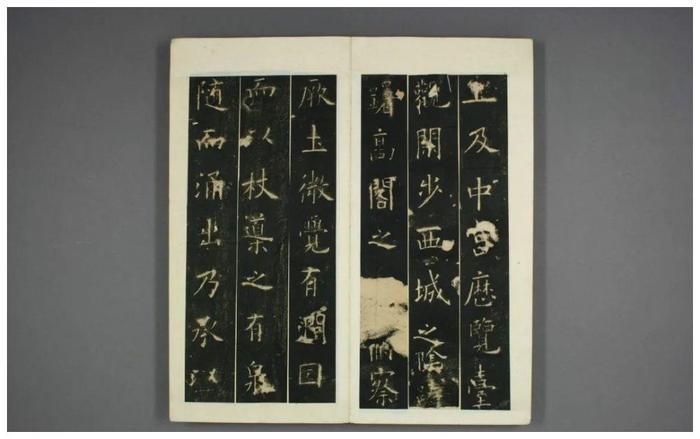 上及中宮歷覽臺
觀閑步西城之陰躊
躇高閣之俯察
厥土微覺有潤因
而以杖導之有泉
随而涌出乃承以